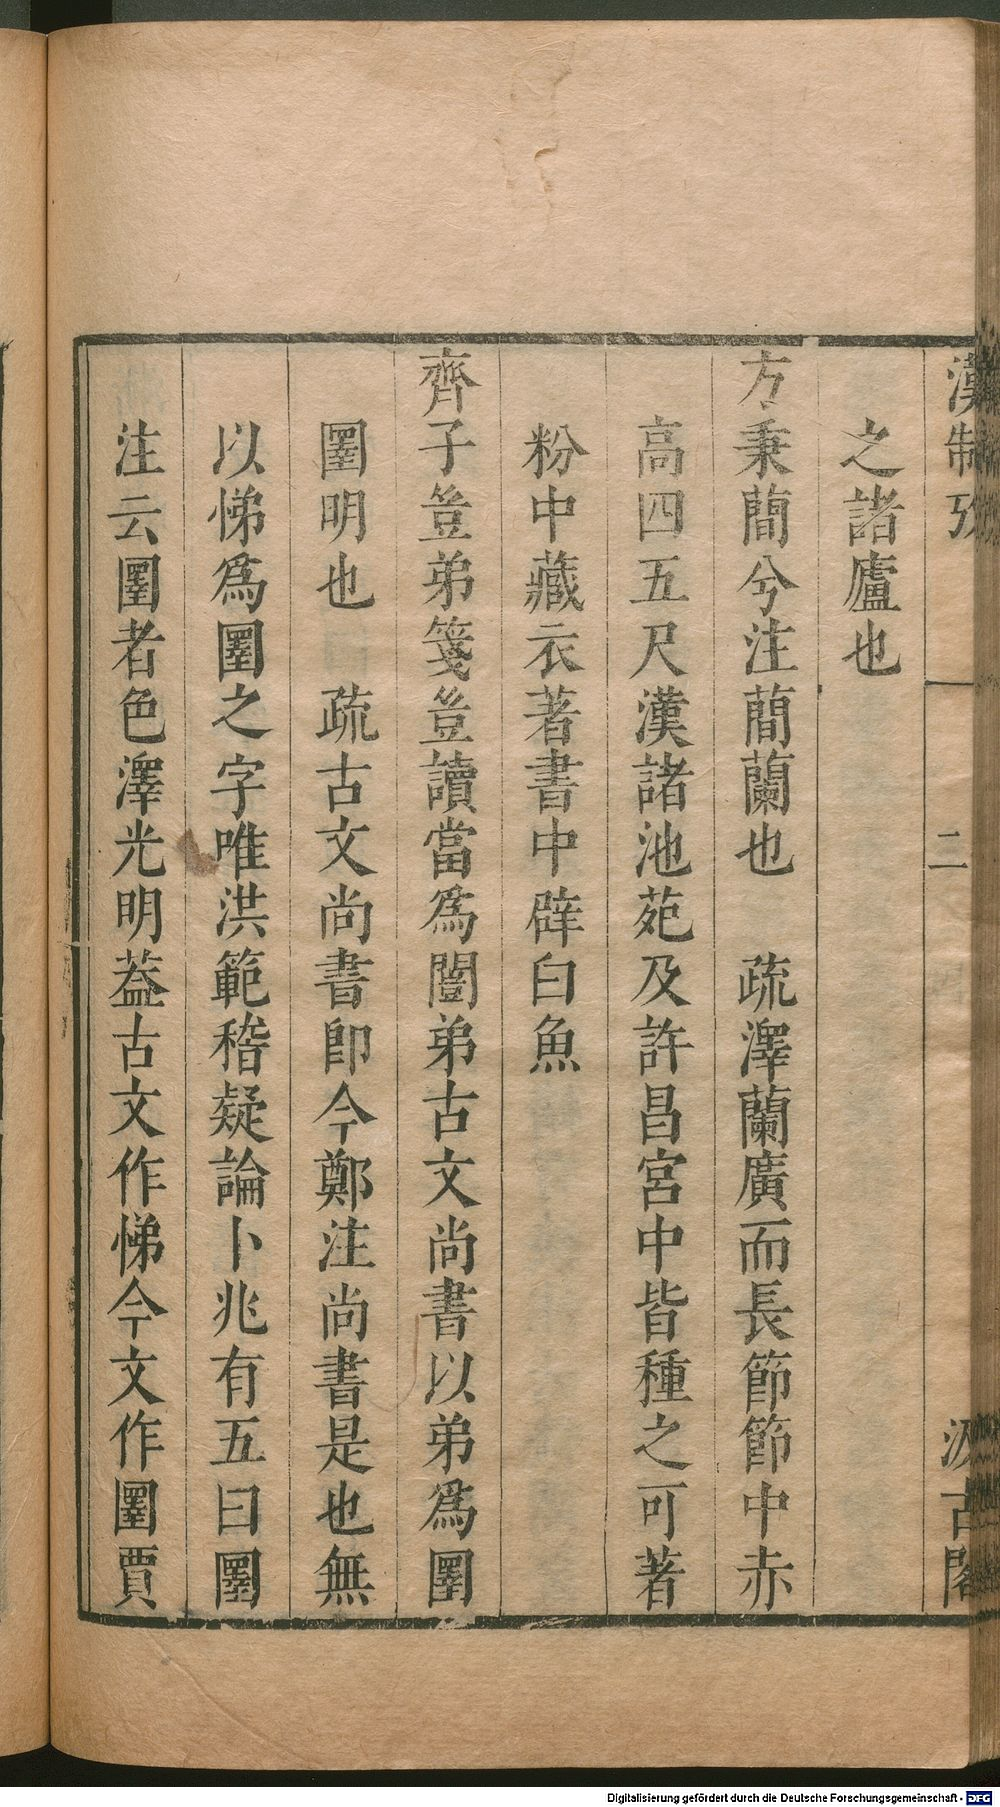 漢制攷
二
汲古閣
之諸廬也
方秉蕑兮注蕑蘭也　疏澤蘭廣而長節節中赤
高四五尺漢諸池苑及許昌宮中皆種之可著
粉中藏衣著書中辟白魚
齊子豈弟箋豈讀當爲闓弟古文尚書以弟爲圛
圛明也　疏古文尚書即今鄭注尚書是也無
以悌爲圛之字唯洪範稽疑論卜兆有五曰圛
注云圛者色澤光明葢古文作悌今文作圛賈
Digitalisierung gefördert durch die Deutsche Forschungsgemeinschaft - DFG